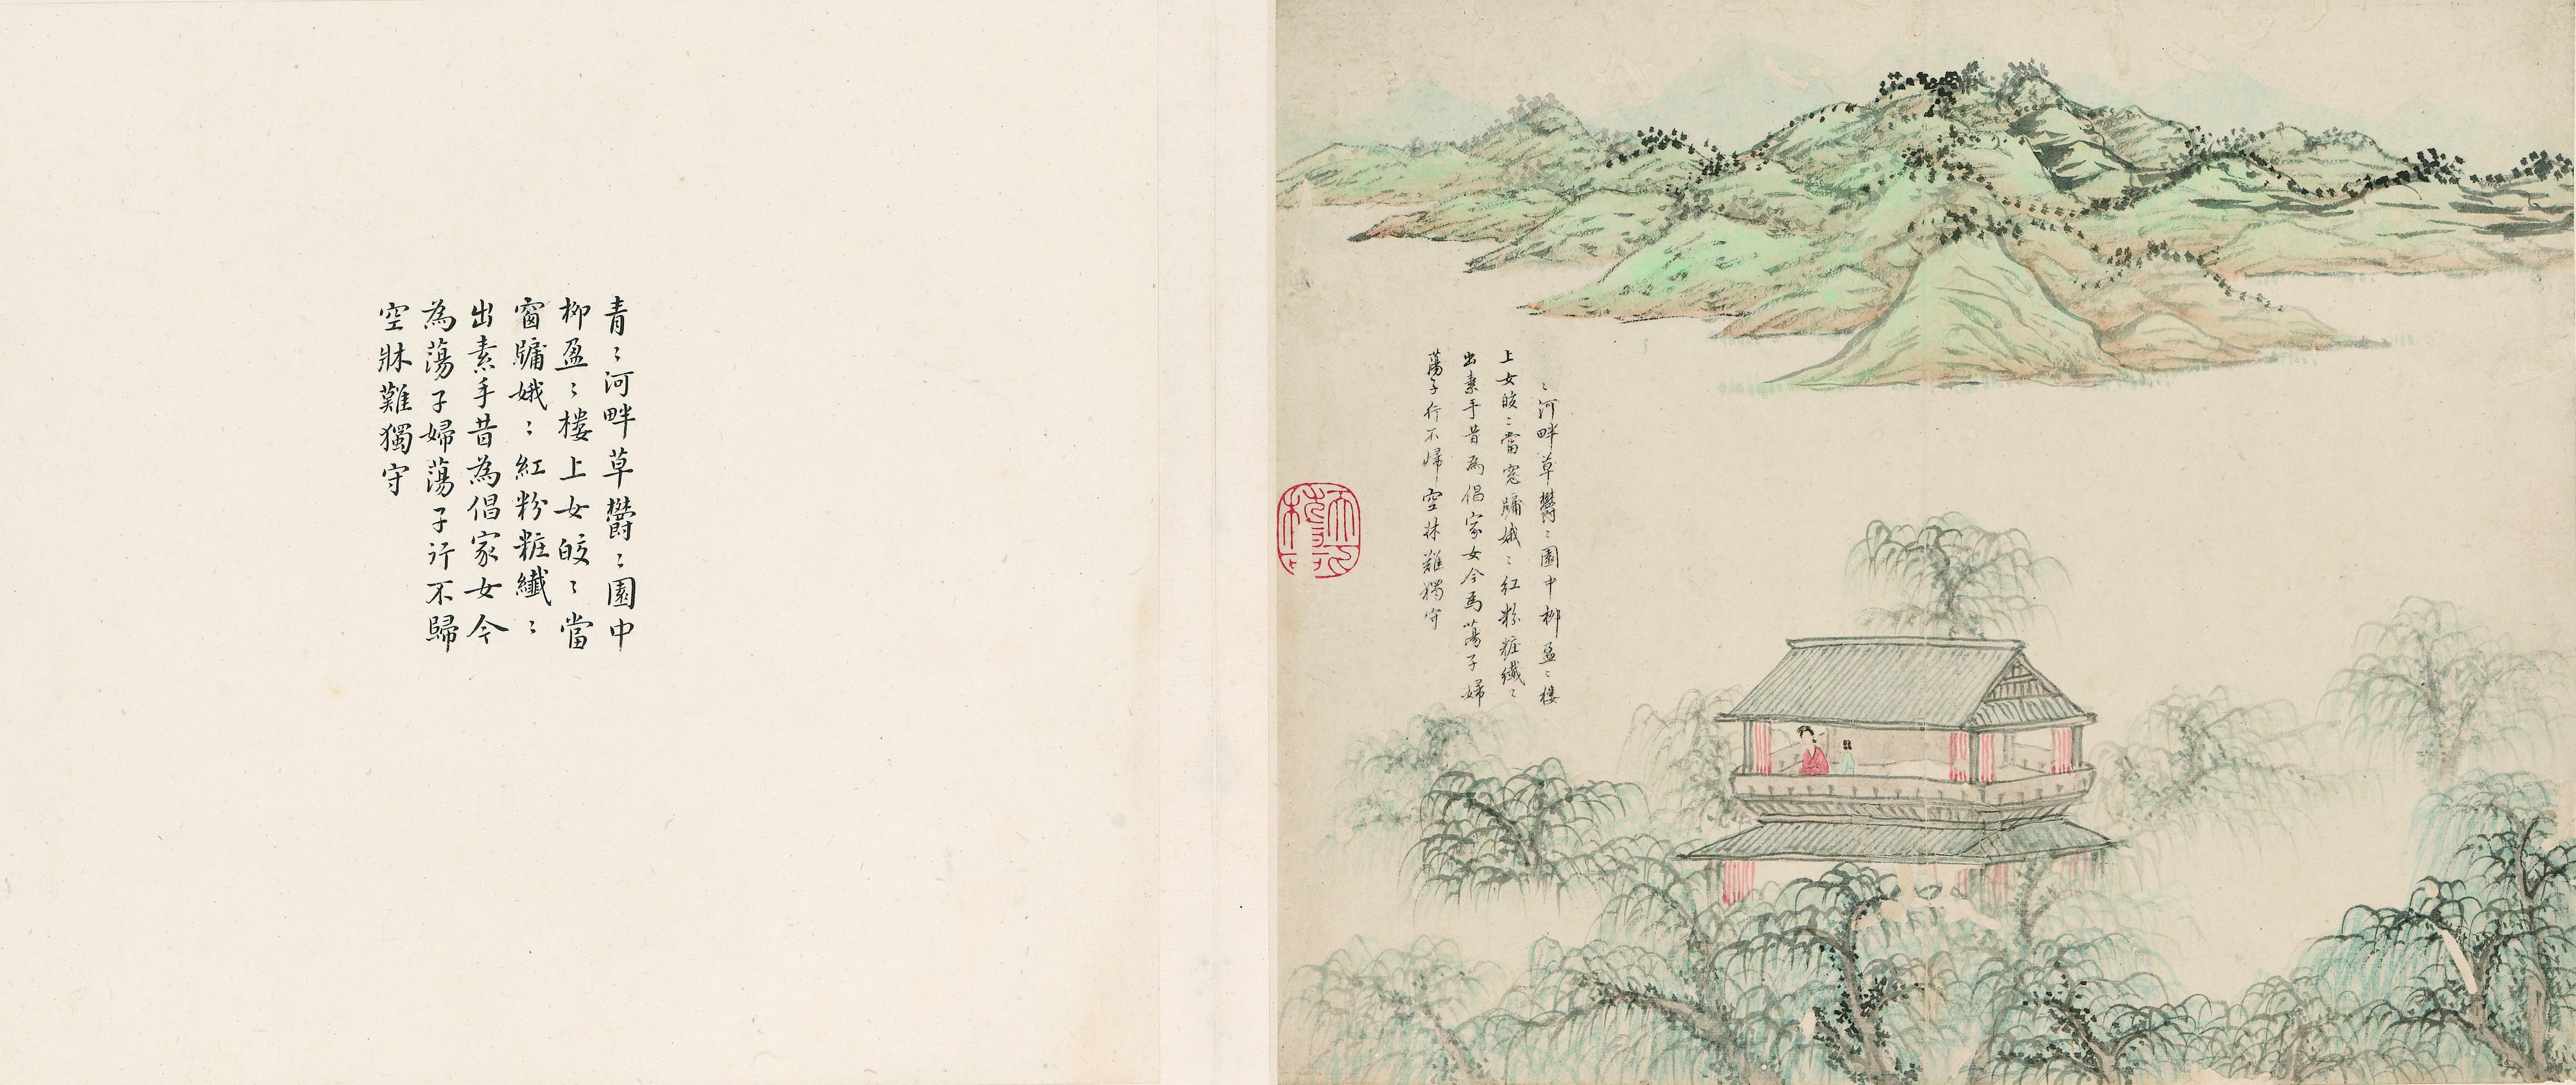 〻河畔草鬱〻園中柳盈〻樓
上女皎〻當窓牖娥〻紅粉粧纖〻
出素手昔為倡家女今為蕩子婦
蕩子行不歸空牀難獨守
青〻河畔草鬱〻園中
柳盈〻樓上女皎〻當
窗牖娥〻紅粉粧纖〻
出素手昔為倡家女今
為蕩子婦蕩子行不歸
空牀難獨守